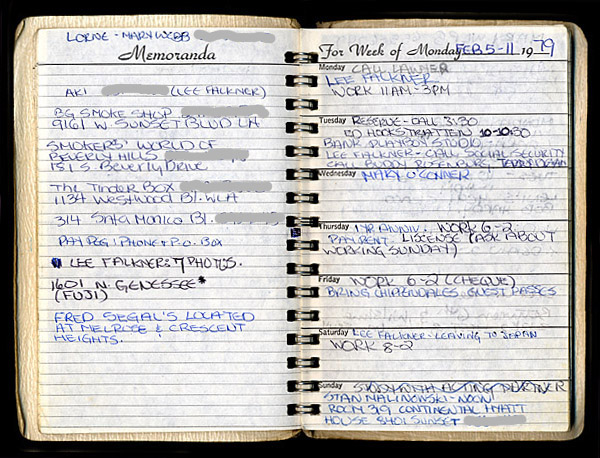 LORNE - MARY WEBB
Memoranda
AKI (LEE FALKNER)
BG SMOKE SHOP
9161 W. SUNSET BLVD LA
SMOKERS' WORLD OF
BEVERLY HILLS
151 S. Beverly Drive
The Tinder Box
1134 Westwood Bl. WLA
314 Santa Monica Bl.
PAY PG 1 PHONE + P.O. BOX
LEE FALKNER: 7 PHOTOS.
1601 N. GENESSEE*
(FUJI)
FRED SEGAL'S LOCATED
AT MELROSE & CRESCENT
HEIGHTS.
For Week of Monday FEB 5-11 1979
Monday CALL LAWNER
LEE FALKNER
WORK 11AM-3PM
Tuesday RESERVE - CALL 3:30
BO HOOKSTRATTEN 10-10:30
BANK PLAYBOY STUDIO
LEE FALKNER - CALL SOCIAL SECURITY
CALL
Wednesday MARY O'CONNER
Thursday 1 YR ANNIV. WORK 6-2
PAY RENT. LISCENSE (ASK ABOUT
WORKING SUNDAY)
Friday WORK 6-2 (CHEQUE)
BRING CHIPENDALES GUEST PASSES
Saturday LEE FALKNER - LEAVING TO JAPAN
WORK 8-2
Sunday STUDY WITH ACTING PARTNER
STAN MALINOWSKI - NOON
ROOM 319 CONTINENTAL HYATT
HOUSE 8401 SUNSET